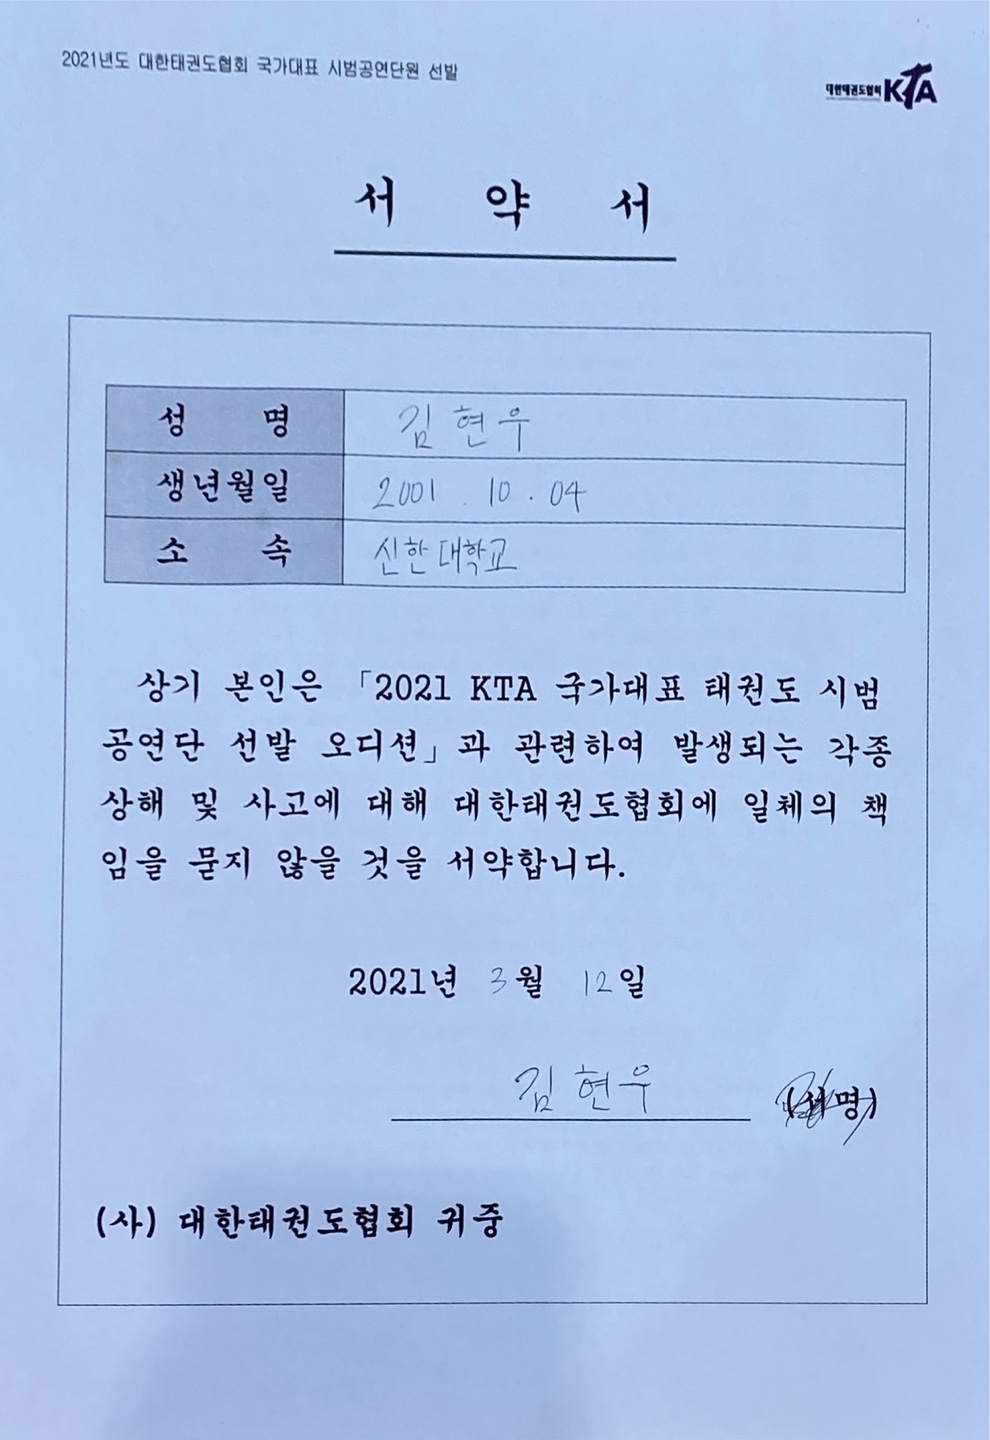 2021년도 대한태권도협회 국가대표 시범공연단원 선발
대한태권도협회 KTA
서 약 서
성 명 김현우
생년월일 2001. 10. 04
소 속 신한대학교
상기 본인은 「2021 KTA 국가대표 태권도 시범
공연단 선발 오디션」과 관련하여 발생되는 각종
상해 및 사고에 대해 대한태권도협회에 일체의 책
임을 묻지 않을 것을 서약합니다.
2021년 3월 12일
김현우 (서명)
(사) 대한태권도협회 귀중